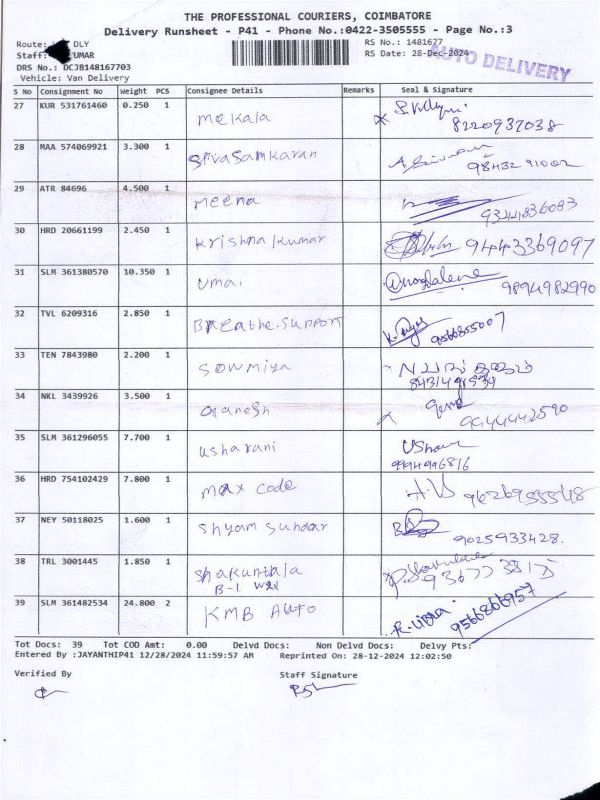 THE PROFESSIONAL COURIERS, COIMBATORE
Delivery Runsheet - P41 - Phone No.:0422-3505555 - Page No.:3
Route: DLY
RS No.: 1481677
Staff: KUMAR
RS Date: 28-Dec-2024
AUTO DELIVERY
DRS No.: DCJB148167703
Vehicle: Van Delivery
S No Consignment No Weight PCS Consignee Details Remarks Seal & Signature
27 KUR 531761460 0.250 1 mekala 8220937038
28 MAA 574069921 3.300 1 Sivasamkaran 9843291002
29 ATR 84696 4.500 1 meena 9344836083
30 HRD 20661199 2.450 1 Krishna kumar 9443369097
31 SLM 361380570 10.350 1 Umai Magdalene 9894982990
32 TVL 6209316 2.850 1 Breathe.Support 9566855007
33 TEN 7843980 2.200 1 Sowmiya
34 NKL 3439926 3.500 1 Ganesh 9944442590
35 SLM 361296055 7.700 1 Usharani 9994996816
36 HRD 754102429 7.800 1 max code
37 NEY 50118025 1.600 1 Shyam Sundar 9025933428.
38 TRL 3001445 1.850 1 Shakuntala
39 SLM 361482534 24.800 2 KMB Auto 9566866957
Tot Docs: 39 Tot COD Amt: 0.00 Delvd Docs: Non Delvd Docs: Delvy Pts:
Entered By :JAYANTHIP41 12/28/2024 11:59:57 AM Reprinted On: 28-12-2024 12:02:50
Verified By Staff Signature